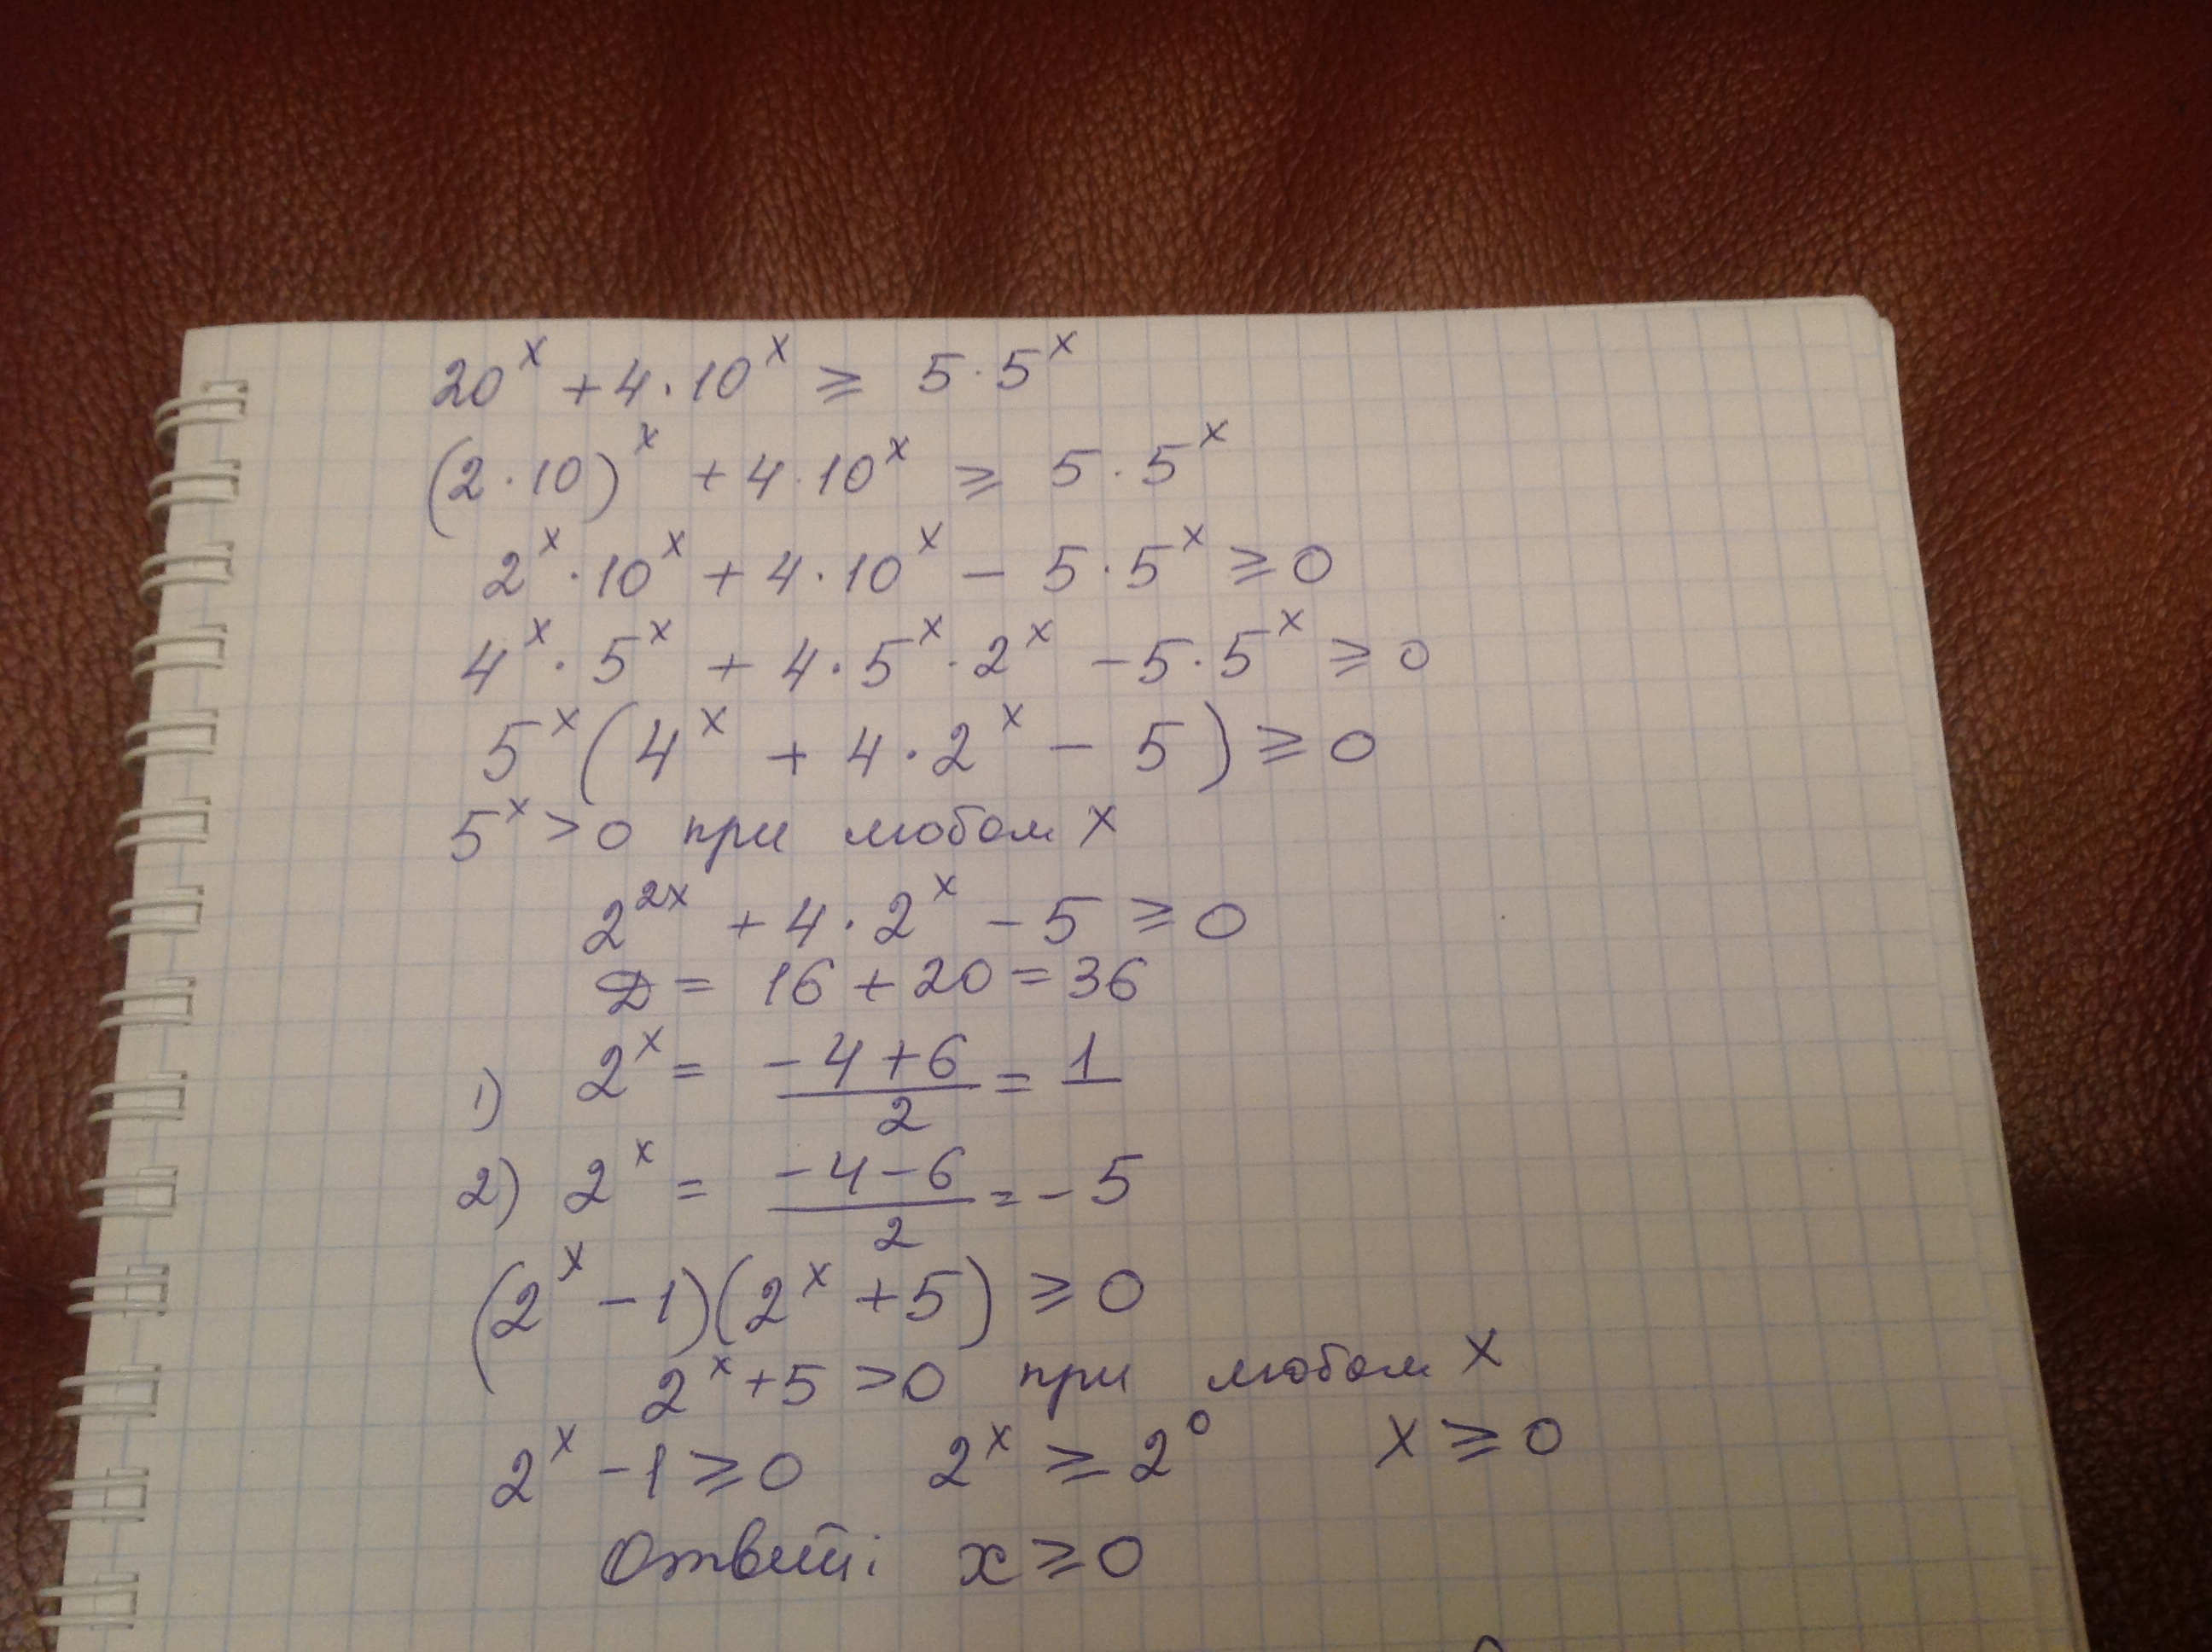 20^x + 4·10^x ≥ 5·5^x
(2·10)^x + 4·10^x ≥ 5·5^x
2^x·10^x + 4·10^x − 5·5^x ≥ 0
4^x·5^x + 4·5^x·2^x − 5·5^x ≥ 0
5^x(4^x + 4·2^x − 5) ≥ 0
5^x > 0 при любом x
2^2x + 4·2^x − 5 ≥ 0
D = 16 + 20 = 36
1) 2^x = (−4+6)/2 = 1
2) 2^x = (−4−6)/2 = −5
(2^x − 1)(2^x + 5) ≥ 0
2^x + 5 > 0 при любом x
2^x − 1 ≥ 0 2^x ≥ 2^0 x ≥ 0
Ответ: x ≥ 0